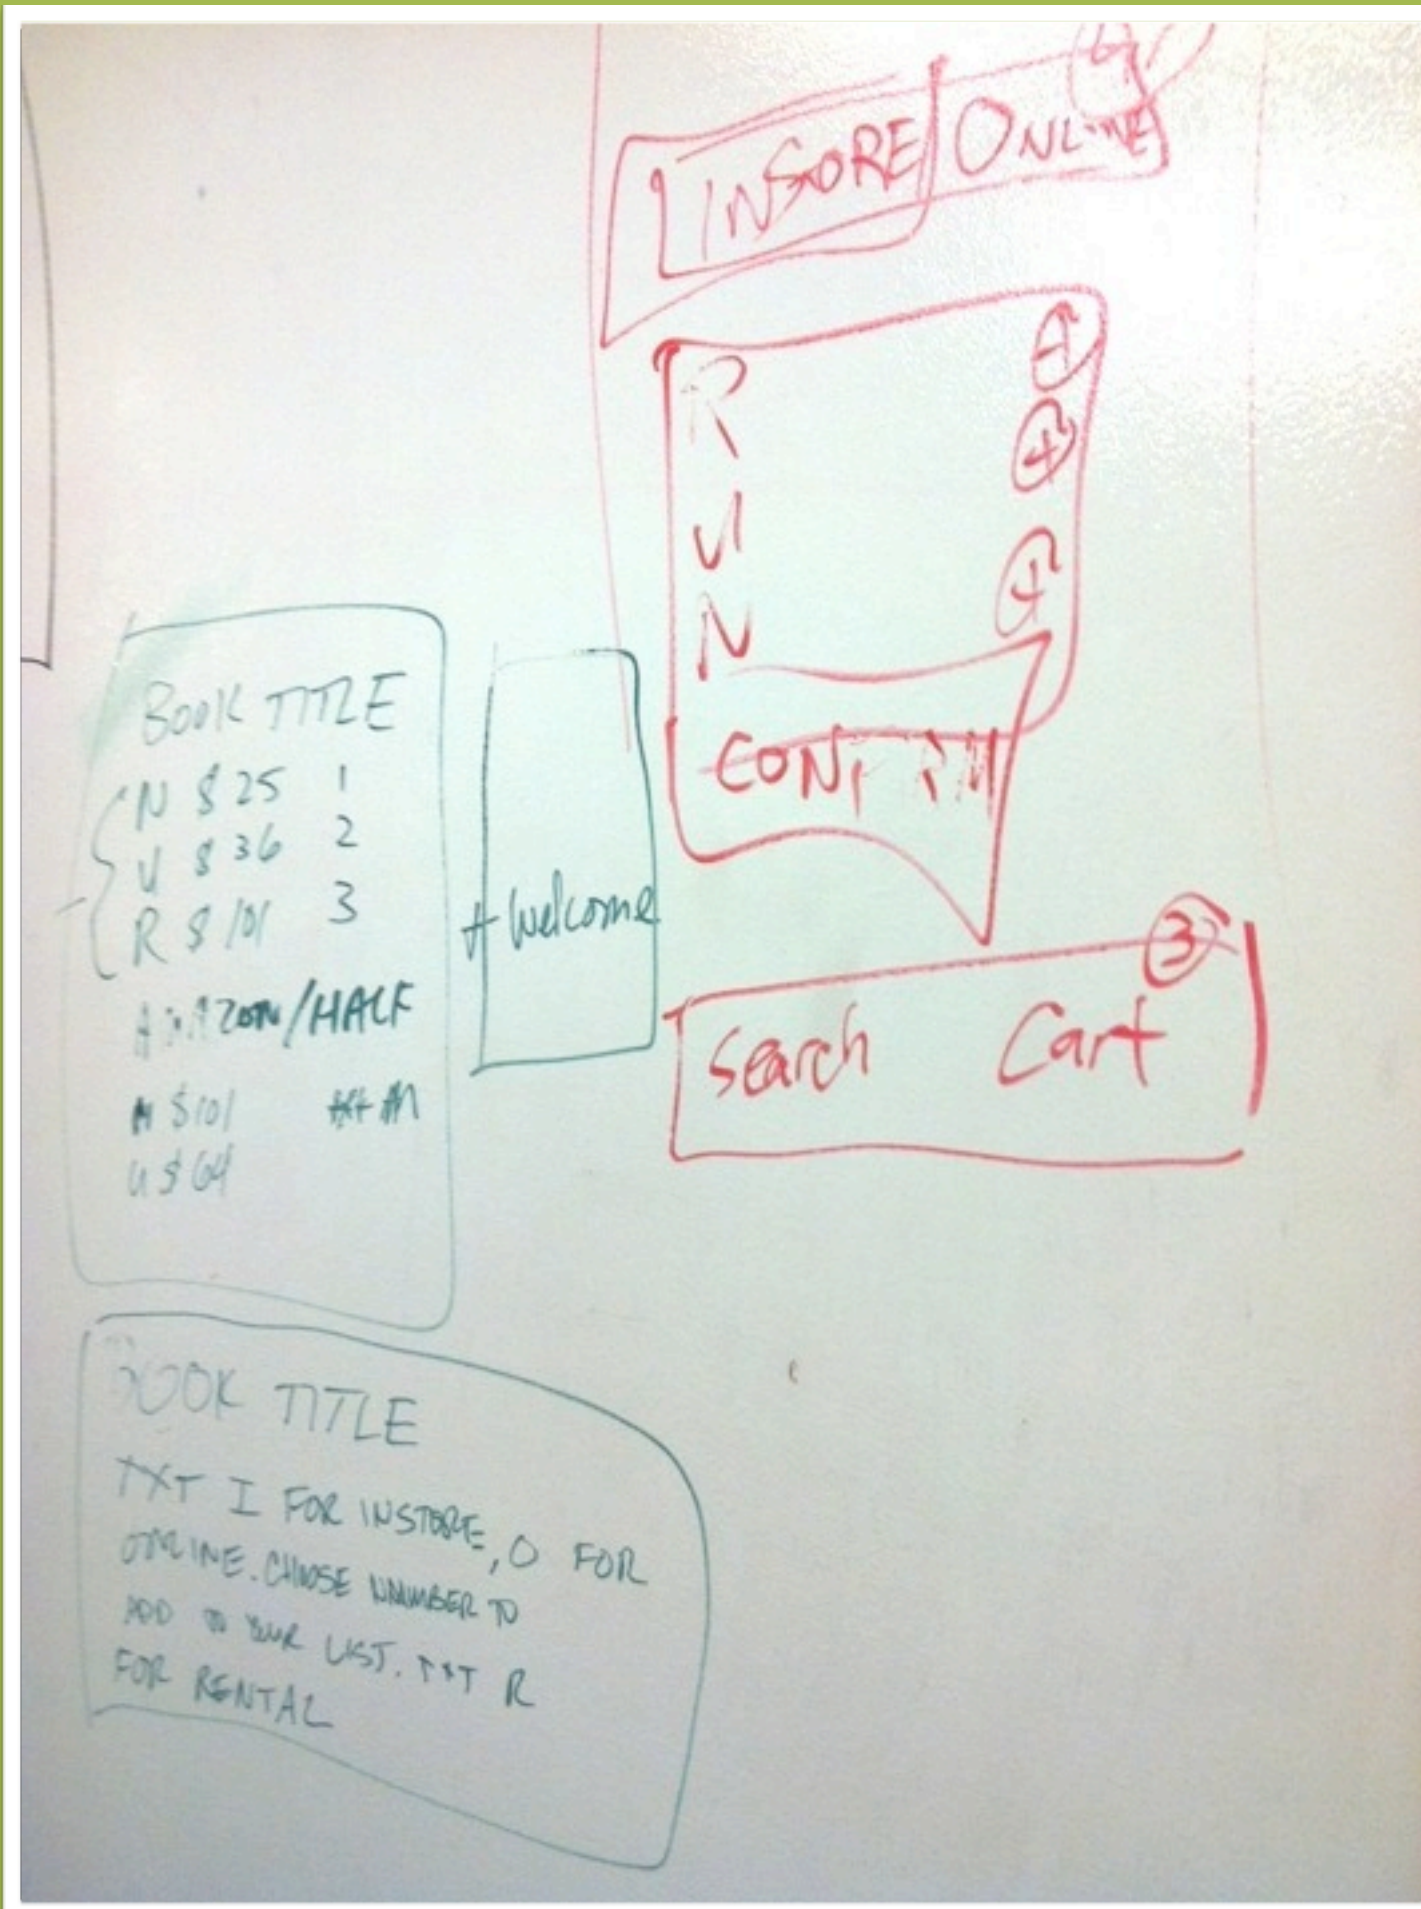 INSORE ONLINE
R +
U +
N +
CONFIRM
Search Cart 3
BOOK TITLE
N $25 1
U $36 2
R $101 3
AMAZON/HALF
N $101
U $64
+ Welcome
BOOK TITLE
TXT I FOR INSTORE, O FOR
ONLINE. CHOOSE NNUMBER TO
ADD TO YOUR LIST. TXT R
FOR RENTAL